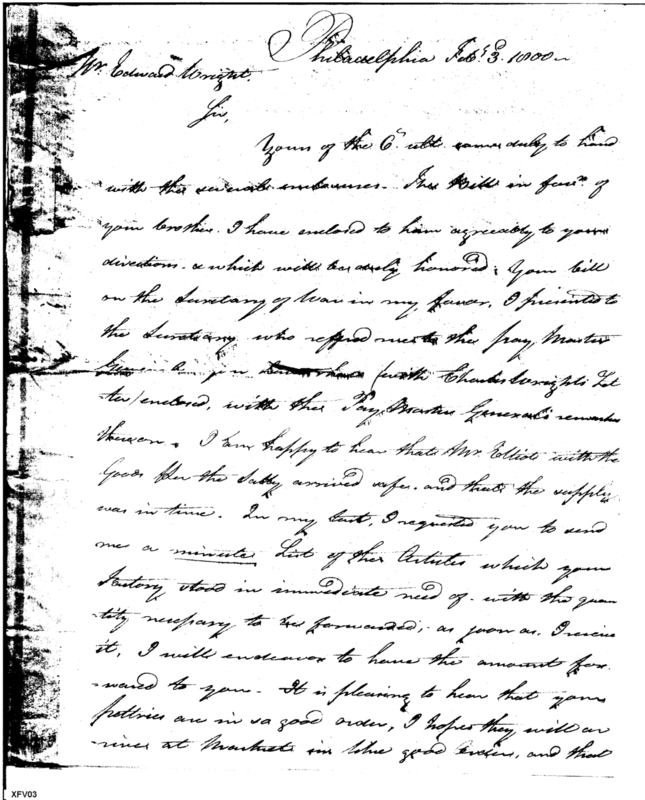 Philadelphia Feby. 3. 1800
Mr. Edward Wright.
Sir,
Yours of the 6th ult. came duly to hand
with the several enclosures. The Bill in favr. of
your brother I have enclosed to him agreeably to your
directions & which will be duly honored; Your bill
on the Secretary of War in my favor, I presented to
the Secretary who referred me to the pay Master
(with Charles Wright's Let
ter) enclosed, with the Pay Master General's remarks
thereon. I am happy to hear that Mr. Elliot with the
Goods for the arrived safe. and that the supply
was in time. In my last, I requested you to send
me a minute List of the Articles which your
Factory stood in immediate need of. with the quan
tity necessary to be forwarded; as soon as I receive
it, I will endeavor to have the amount for
warded to you. It is pleasing to hear that your
peltries are in so good order, I hope they will ar
rive at Market in like good order, and that
XFV03